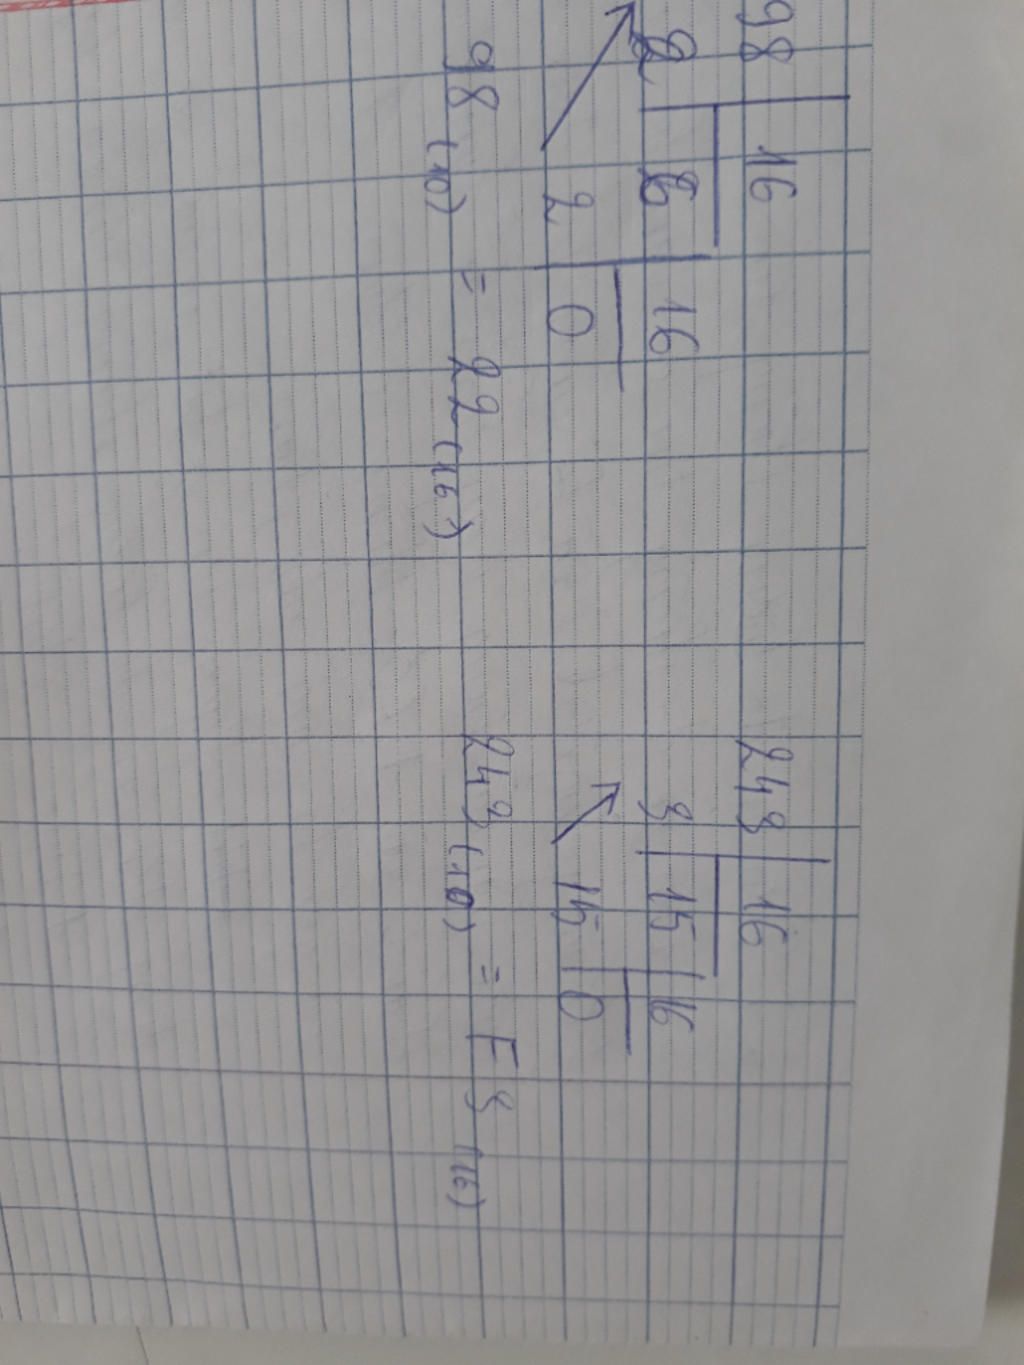 98 16 243 16
2 6 16 3 15 16
2 0 15 0
98 (10) = 22 (16) 243 (10) = F3 (16)